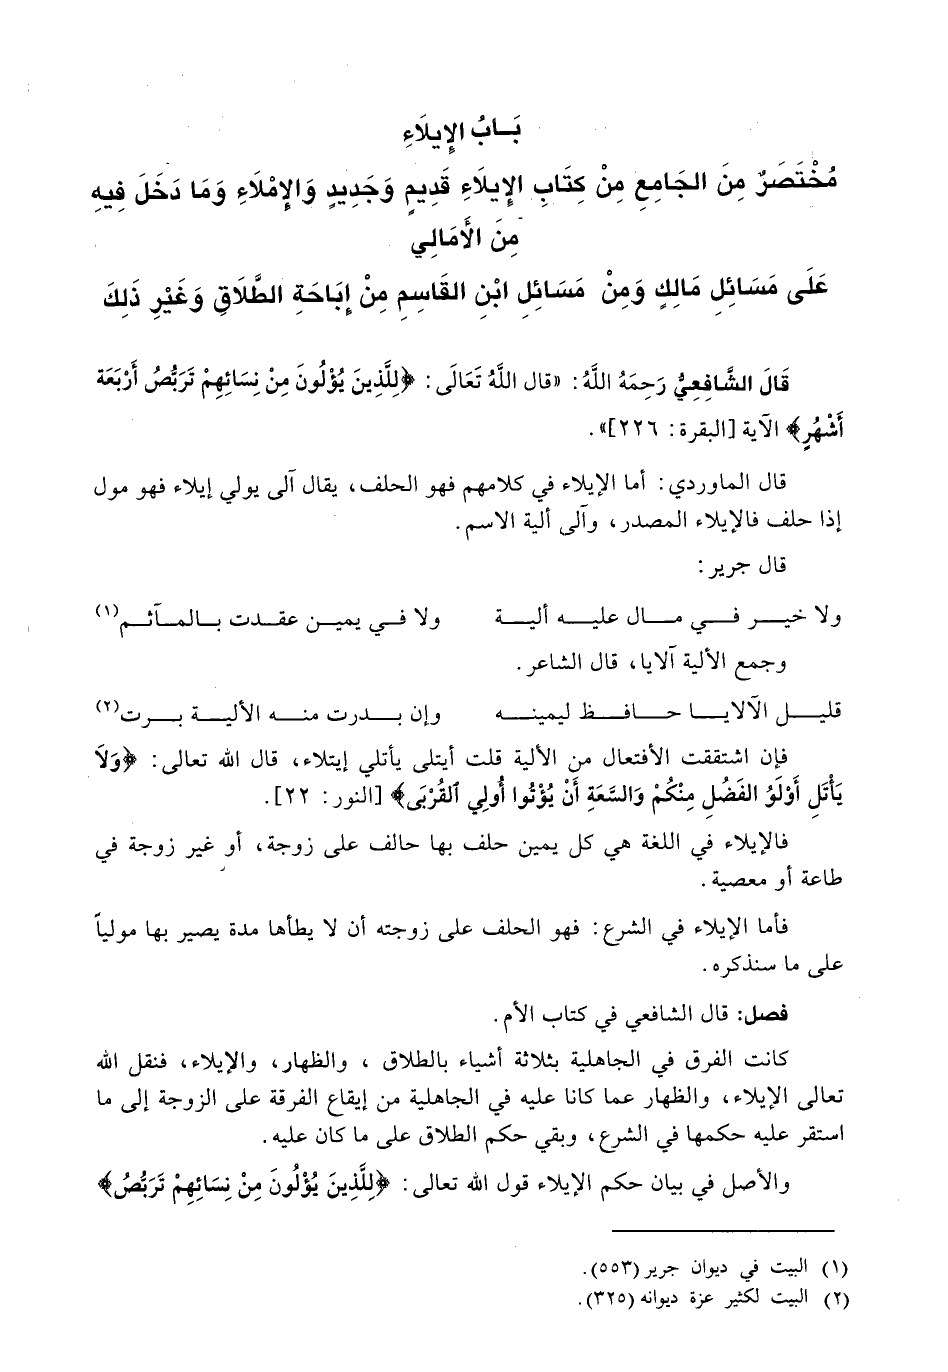 بَابُ الإِيلَاءِ
مُخْتَصَرٌ مِنَ الجَامِعِ مِنْ كِتَابِ الإِيلَاءِ قَدِيمٍ وَجَدِيدٍ وَالإِمْلَاءِ وَمَا دَخَلَ فِيهِ
مِنَ الأَمَالِي
عَلَى مَسَائِلِ مَالِكٍ وَمِنْ مَسَائِلِ ابْنِ القَاسِمِ مِنْ إِبَاحَةِ الطَّلَاقِ وَغَيْرِ ذَلِكَ
قَالَ الشَّافِعِيُّ رَحِمَهُ اللَّهُ: «قال اللَّهُ تَعَالَى: ﴿لِلَّذِينَ يُؤْلُونَ مِنْ نِسَائِهِمْ تَرَبُّصُ أَرْبَعَةَ
أَشْهُرٍ﴾ الآية [البقرة: ٢٢٦]».
قال الماوردي: أما الإيلاء في كلامهم فهو الحلف، يقال آلى يولي إيلاء فهو مول
إذا حلف فالإيلاء المصدر، وآلى ألية الاسم.
قال جرير:
ولا خيـر فـي مـال عليـه أليـة ولا فـي يميـن عقـدت بـالمـآثـم(١)
وجمع الألية آلايا، قال الشاعر.
قليـل الآلايـا حـافـظ ليمينـه وإن بـدرت منـه الأليـة بـرت(٢)
فإن اشتققت الأفتعال من الألية قلت أيتلى يأتلي إيتلاء، قال الله تعالى: ﴿وَلَا
يَأْتَلِ أَوْلَوُ الفَضْلِ مِنكُمْ وَالسَّعَةِ أَنْ يُؤْتُوا أُولِي ٱلقُرْبَى﴾ [النور: ٢٢].
فالإيلاء في اللغة هي كل يمين حلف بها حالف على زوجة، أو غير زوجة في
طاعة أو معصية.
فأما الإيلاء في الشرع: فهو الحلف على زوجته أن لا يطأها مدة يصير بها مولياً
على ما سنذكره.
فصل: قال الشافعي في كتاب الأم.
كانت الفرق في الجاهلية بثلاثة أشياء بالطلاق ، والظهار، والإيلاء، فنقل الله
تعالى الإيلاء، والظهار عما كانا عليه في الجاهلية من إيقاع الفرقة على الزوجة إلى ما
استقر عليه حكمها في الشرع، وبقي حكم الطلاق على ما كان عليه.
والأصل في بيان حكم الإيلاء قول الله تعالى: ﴿لِلَّذِينَ يُؤْلُونَ مِنْ نِسَائِهِمْ تَرَبُّصُ﴾
(١) البيت في ديوان جرير (٥٥٣).
(٢) البيت لكثير عزة ديوانه (٣٢٥).